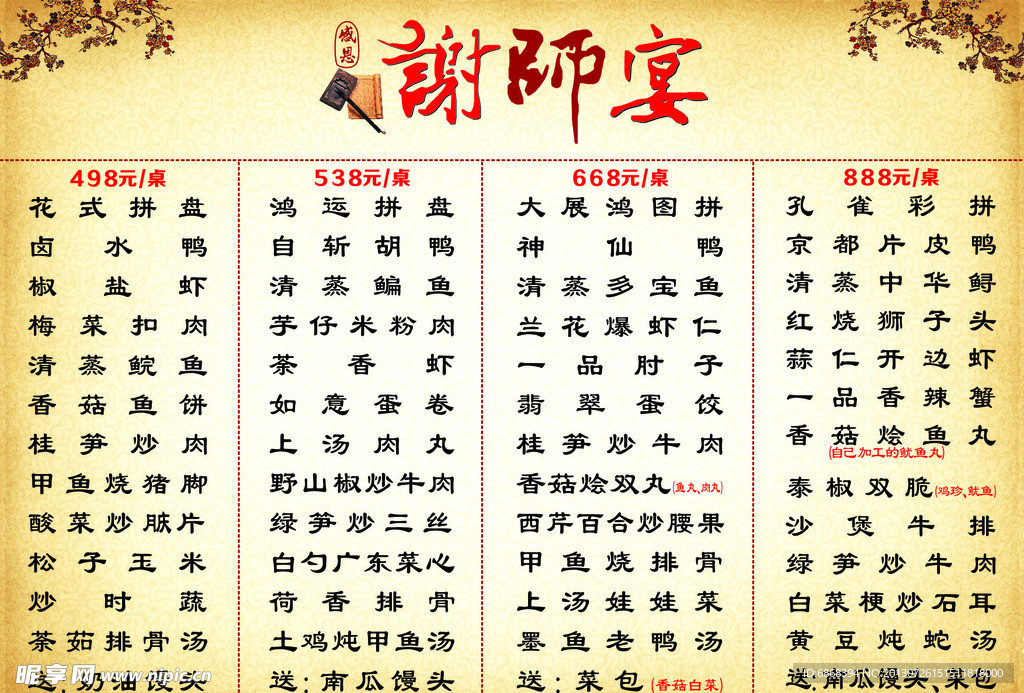 感恩
謝師宴
498元/桌
花式拼盘
卤水鸭
椒盐虾
梅菜扣肉
清蒸鲩鱼
香菇鱼饼
桂笋炒肉
甲鱼烧猪脚
酸菜炒脄片
松子玉米
炒时蔬
茶茹排骨汤
送:奶油馒头
538元/桌
鸿运拼盘
自斩胡鸭
清蒸鳊鱼
芋仔米粉肉
茶香虾
如意蛋卷
上汤肉丸
野山椒炒牛肉
绿笋炒三丝
白勺广东菜心
荷香排骨
土鸡炖甲鱼汤
送:南瓜馒头
668元/桌
大展鸿图拼
神仙鸭
清蒸多宝鱼
兰花爆虾仁
一品肘子
翡翠蛋饺
桂笋炒牛肉
香菇烩双丸(鱼丸、肉丸)
西芹百合炒腰果
甲鱼烧排骨
上汤娃娃菜
墨鱼老鸭汤
送:菜包(香菇白菜)
888元/桌
孔雀彩拼
京都片皮鸭
清蒸中华鲟
红烧狮子头
蒜仁开边虾
一品香辣蟹
香菇烩鱼丸
(自己加工的鱿鱼丸)
泰椒双脆(鸡珍、鱿鱼)
沙煲牛排
绿笋炒牛肉
白菜梗炒石耳
黄豆炖蛇汤
送:南瓜馒头、菜包
昵享网 www.nipic.cn